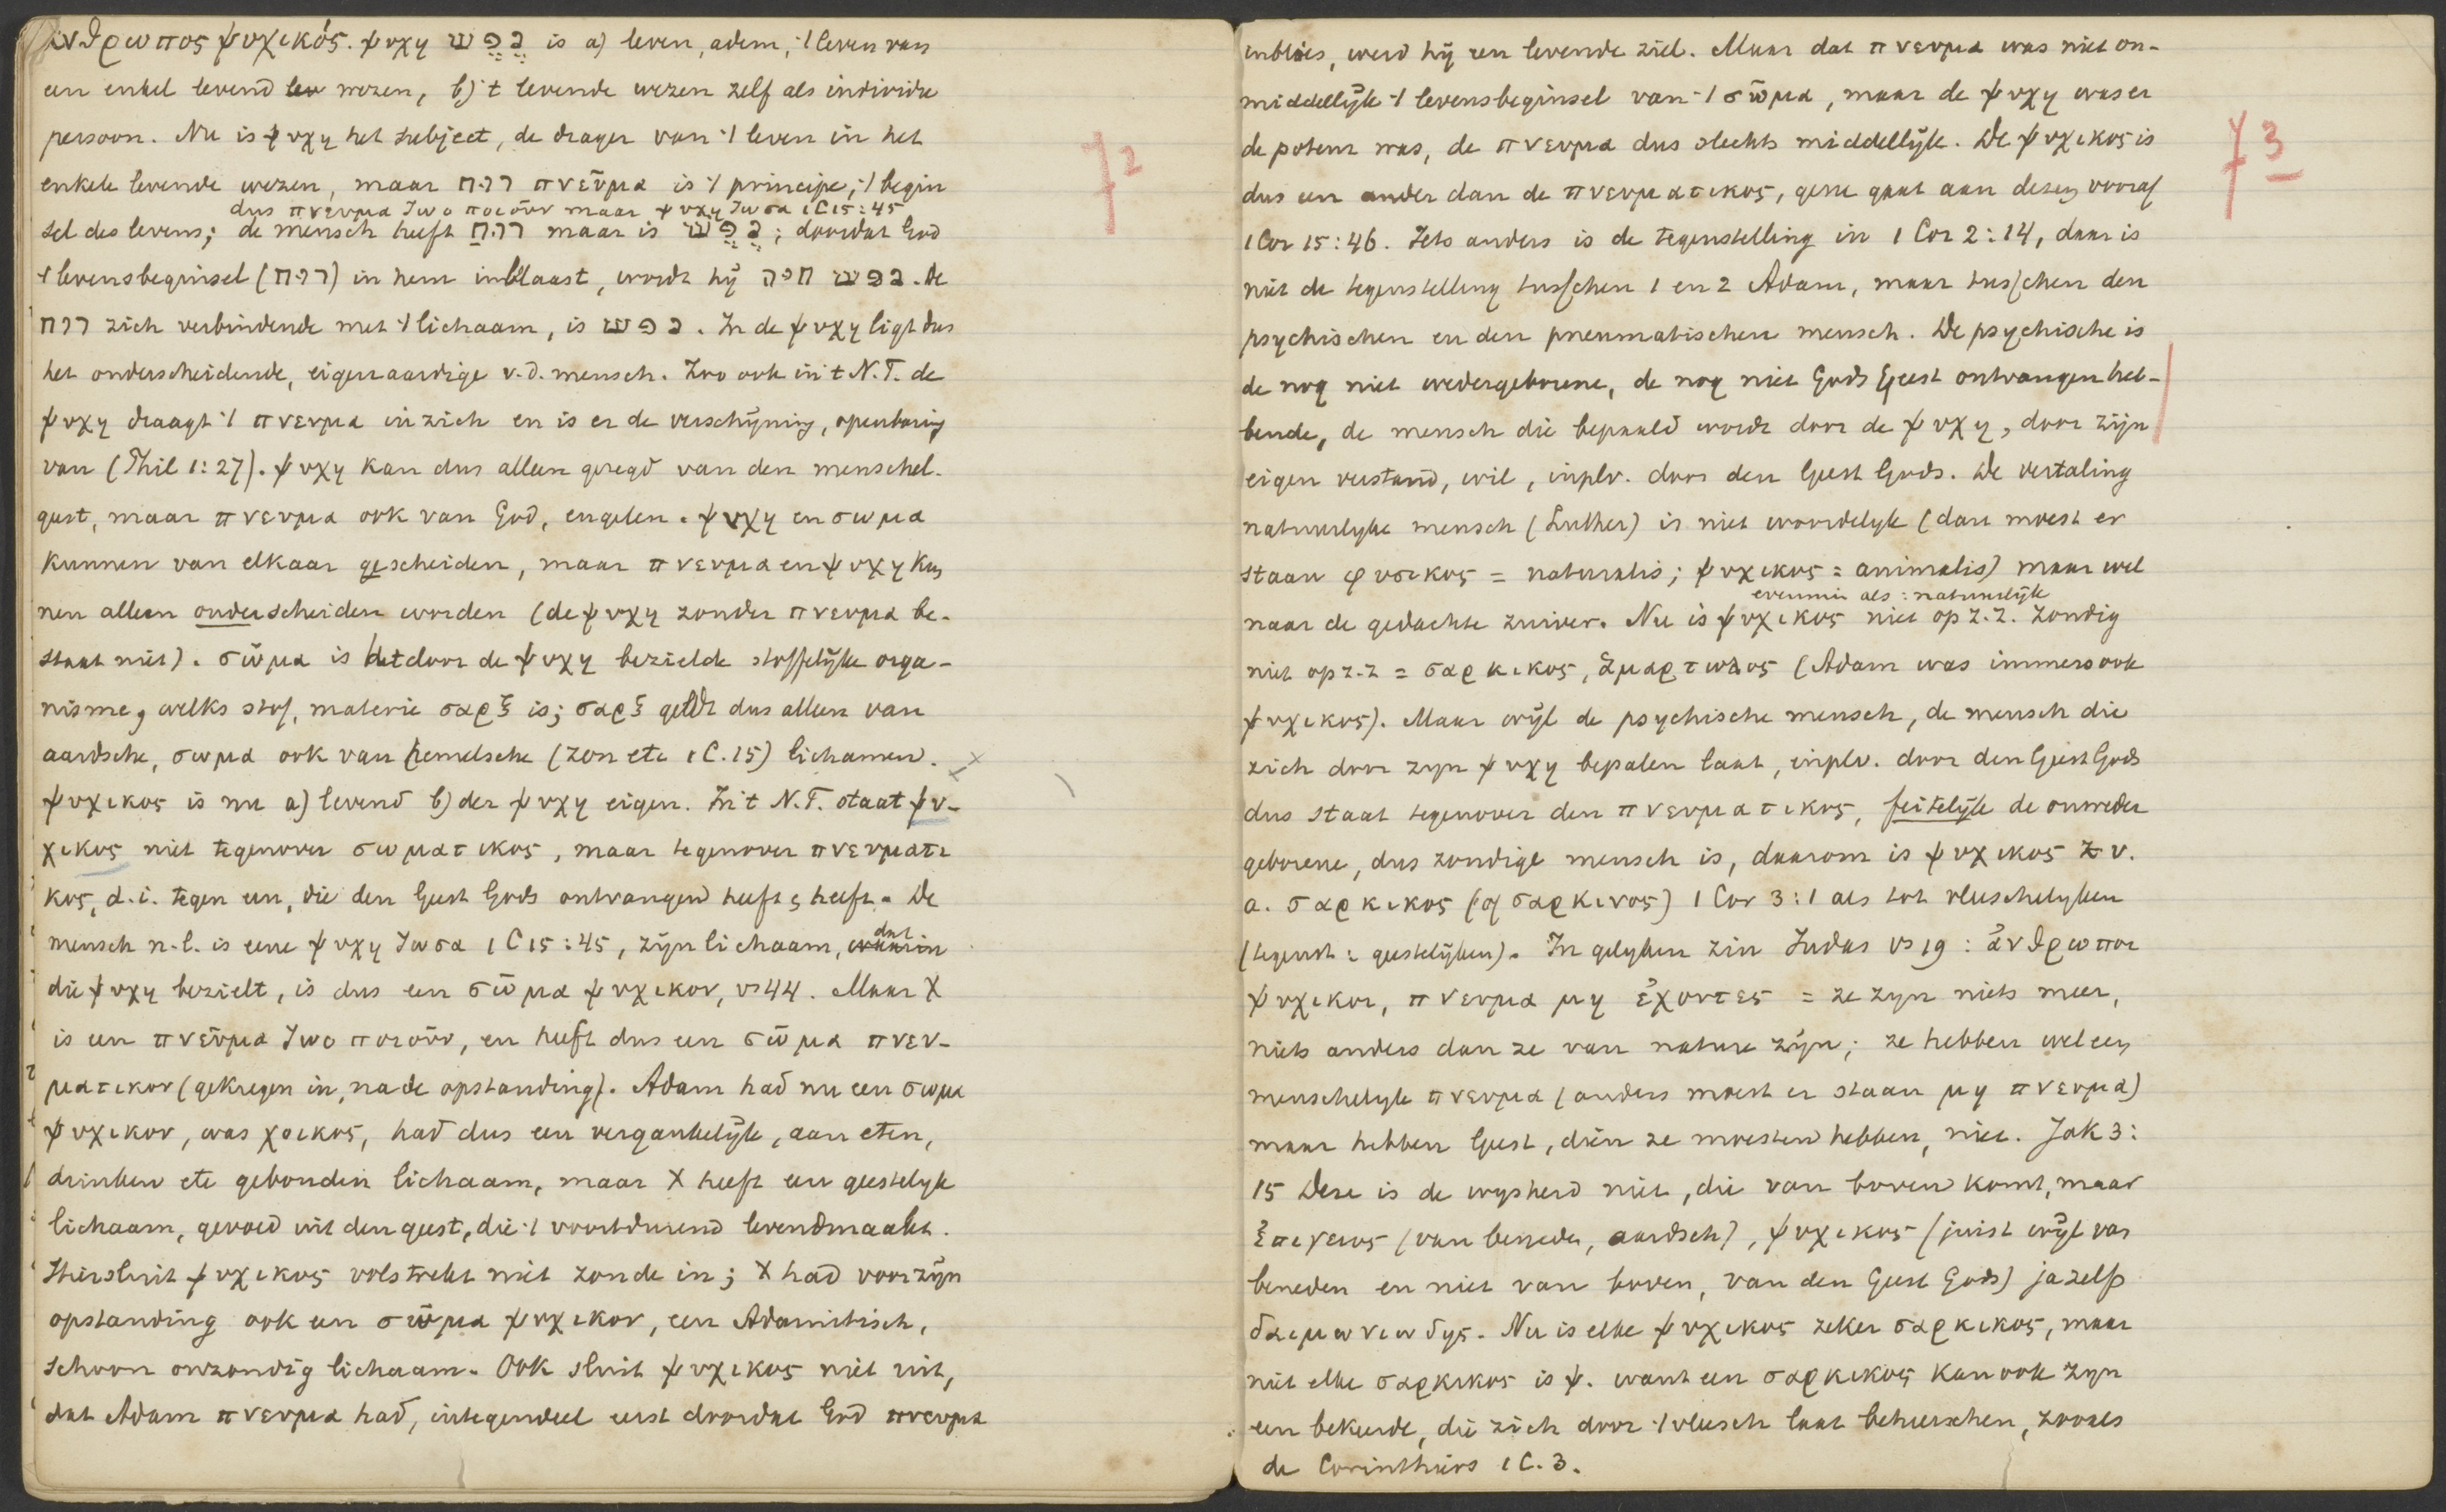 ἀνϑρωπος ψυχικός. ψυχη נֶפֶשׁ is a) leven, adem, 't leven van
een enkel levend lev wezen, b) 't levende wezen zelf als individu
persoon. Nu is ψυχη het subject, de drager van 't leven in het
enkele levende wezen, maar רוח πνεῦμα is 't principe, 't begin
dus πνευμα ζωοποιοῦν maar ψυχη ζωσα 1C15:45
sel des levens; de mensch heeft רוּחַ maar is נֶפֶשׁ; doordat God
't levensbeginsel (רוח) in hem inblaast, wordt hij נפש חיה. De
רוח zich verbindende met 't lichaam, is נפש. In de ψυχη ligt dus
het onderscheidende, eigenaardige v.d. mensch. Zoo ook in 't N.T. de
ψυχη draagt 't πνευμα in zich en is er de verschijning, openbaring
van (Phil 1:27). ψυχη kan dus alleen gezegd van den menschel.
geest, maar πνευμα ook van God, engelen. ψυχη en σωμα
kunnen van elkaar gescheiden, maar πνευμα en ψυχη kun
nen alleen onderscheiden worden (de ψυχη zonder πνευμα be-
staat niet). σῶμα is het door de ψυχη bezielde stoffelijke orga-
nisme, welks stof, materie σαρξ is; σαρξ geldt dus alleen van
aardsche, σωμα ook van hemelsche (zon etc 1C.15) lichamen.
ψυχικος is nu a) levend b) der ψυχη eigen. In 't N.T. staat ψυ-
χικος niet tegenover σωματικος, maar tegenover πνευματι
κος, d.i. tegen een, die den Geest Gods ontvangen heeft, heeft. De
mensch n.l. is eene ψυχη ζωσα 1C15:45, zijn lichaam, waarin dat
die ψυχη bezielt, is dus een σῶμα ψυχικον, vs 44. Maar X
is een πνεῦμα ζωοποιοῦν, en heeft dus een σῶμα πνευ-
ματικον (gekregen in, na de opstanding). Adam had nu een σωμα
ψυχικον, was χοικος, had dus een vergankelijk, aan eten,
drinken etc gebonden lichaam, maar X heeft een geestelyk
lichaam, gevoed uit den geest, die 't voortdurend levendmaakt.
Hier sluit ψυχικος volstrekt niet zonde in; X had voor zijn
opstanding ook een σῶμα ψυχικον, een Adamitisch,
schoon onzondig lichaam. Ook sluit ψυχικος niet uit,
dat Adam πνευμα had, integendeel eerst doordat God πνευμα
72
inblies, werd hij een levende ziel. Maar dat πνευμα was niet on-
middellijk 't levensbeginsel van 't σῶμα, maar de ψυχη was er
de potenz was, de πνευμα dus slechts middellijk. De ψυχικος is
dus een ander dan de πνευματικος, gene gaat aan dezen vooraf
1 Cor 15:46. Iets anders is de tegenstelling in 1 Cor 2:14, daar is
niet de tegenstelling tusschen 1 en 2 Adam, maar tusschen den
psychischen en den pneumatischen mensch. De psychische is
de nog niet wedergeborene, de nog niet Gods Geest ontvangen heb-
bende, de mensch die bepaald wordt door de ψυχη, door zijn
eigen verstand, wil, inplv. door den Geest Gods. De vertaling
natuurlyke mensch (Luther) is niet woordelyk (dan moest er
staan φυσικος = naturalis; ψυχικος = animalis) maar wel
evenmin als: natuurlijk
naar de gedachte zuiver. Nu is ψυχικος niet op z.z. zondig
niet op z.z = σαρκικος, ἁμαρτωλος (Adam was immers ook
ψυχικος). Maar wijl de psychische mensch, de mensch die
zich door zyn ψυχη bepalen laat, inplv. door den Geest Gods
dus staat tegenover den πνευματικος, feitelijk de onweder
geborene, dus zondige mensch is, daarom is ψυχικος z v.
a. σαρκικος (of σαρκινος) 1 Cor 3:1 als tot vleeschelyken
(tegenst: geestelijken). In gelyken zin Judas vs 19: ἀνϑρωποι
ψυχικοι, πνευμα μη ἐχοντες = ze zyn niets meer,
niets anders dan ze van nature zijn; ze hebben wel een
menschelyk πνευμα (anders moest er staan μη πνευμα)
maar hebben Geest, dien ze moesten hebben, niet. Jak 3:
15 Deze is de wysheid niet, die van boven komt, maar
ἐπιγειος (van beneden, aardsch), ψυχικος (juist wijl van
beneden en niet van boven, van den Geest Gods) ja zelfs
δαιμωνιωδης. Nu is elke ψυχικος zeker σαρκικος, maar
niet elke σαρκικος is ψ. want een σαρκικος kan ook zyn
een bekeerde, die zich door 't vleesch laat beheerschen, zooals
de Corinthiers 1 C. 3.
73